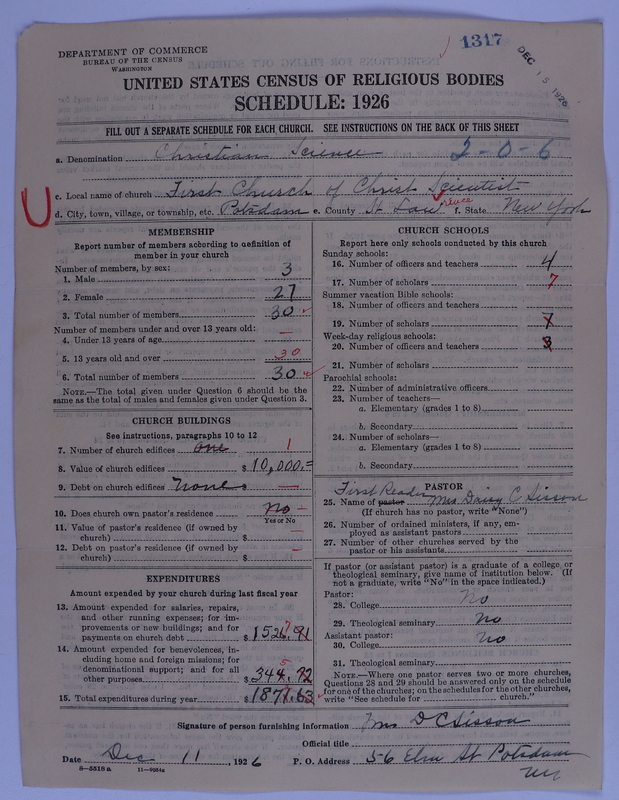 1317
DEC 15 1926
DEPARTMENT OF COMMERCE
BUREAU OF THE CENSUS
WASHINGTON
UNITED STATES CENSUS OF RELIGIOUS BODIES
SCHEDULE: 1926
FILL OUT A SEPARATE SCHEDULE FOR EACH CHURCH. SEE INSTRUCTIONS ON THE BACK OF THIS SHEET
a. Denomination Christian Science 2-0-6
c. Local name of church First Church of Christ Scientist
d. City, town, village, or township, etc. Potsdam e. County St Lawrence f. State New York
MEMBERSHIP
Report number of members according to definition of
member in your church
Number of members, by sex:
1. Male 3
2. Female 27
3. Total number of members 30
Number of members under and over 13 years old:
4. Under 13 years of age —
5. 13 years old and over 30
6. Total number of members 30
NOTE.—The total given under Question 6 should be the
same as the total of males and females given under Question 3.
CHURCH BUILDINGS
See instructions, paragraphs 10 to 12
7. Number of church edifices one 1
8. Value of church edifices $10,000.=
9. Debt on church edifices None —
10. Does church own pastor's residence No —
Yes or No
11. Value of pastor's residence (if owned by
church) $ —
12. Debt on pastor's residence (if owned by
church) $ —
EXPENDITURES
Amount expended by your church during last fiscal year
13. Amount expended for salaries, repairs,
and other running expenses; for im-
provements or new buildings; and for
payments on church debt $1526.91 7
14. Amount expended for benevolences, in-
cluding home and foreign missions; for
denominational support; and for all
other purposes $344.72 5
15. Total expenditures during year $1871.63
CHURCH SCHOOLS
Report here only schools conducted by this church
Sunday schools:
16. Number of officers and teachers 4
17. Number of scholars 7
Summer vacation Bible schools:
18. Number of officers and teachers
19. Number of scholars
Week-day religious schools:
20. Number of officers and teachers 3
21. Number of scholars
Parochial schools:
22. Number of administrative officers
23. Number of teachers—
a. Elementary (grades 1 to 8)
b. Secondary
24. Number of scholars—
a. Elementary (grades 1 to 8)
b. Secondary
PASTOR
First Reader
25. Name of pastor Mrs Daisy C Sisson
(If church has no pastor, write "None")
26. Number of ordained ministers, if any, em-
ployed as assistant pastors
27. Number of other churches served by the
pastor or his assistants
If pastor (or assistant pastor) is a graduate of a college or
theological seminary, give name of institution below. (If
not a graduate, write "No" in the space indicated.)
Pastor:
28. College No
29. Theological seminary No
Assistant pastor:
30. College No
31. Theological seminary
NOTE.—Where one pastor serves two or more churches,
Questions 28 and 29 should be answered only on the schedule
for one of the churches; on the schedules for the other churches,
write "See schedule for church."
Signature of person furnishing information Mrs D C Sisson
Official title
Date Dec 11, 1926 P. O. Address 56 Elm St Potsdam
NY
8—5518a 11—9984a